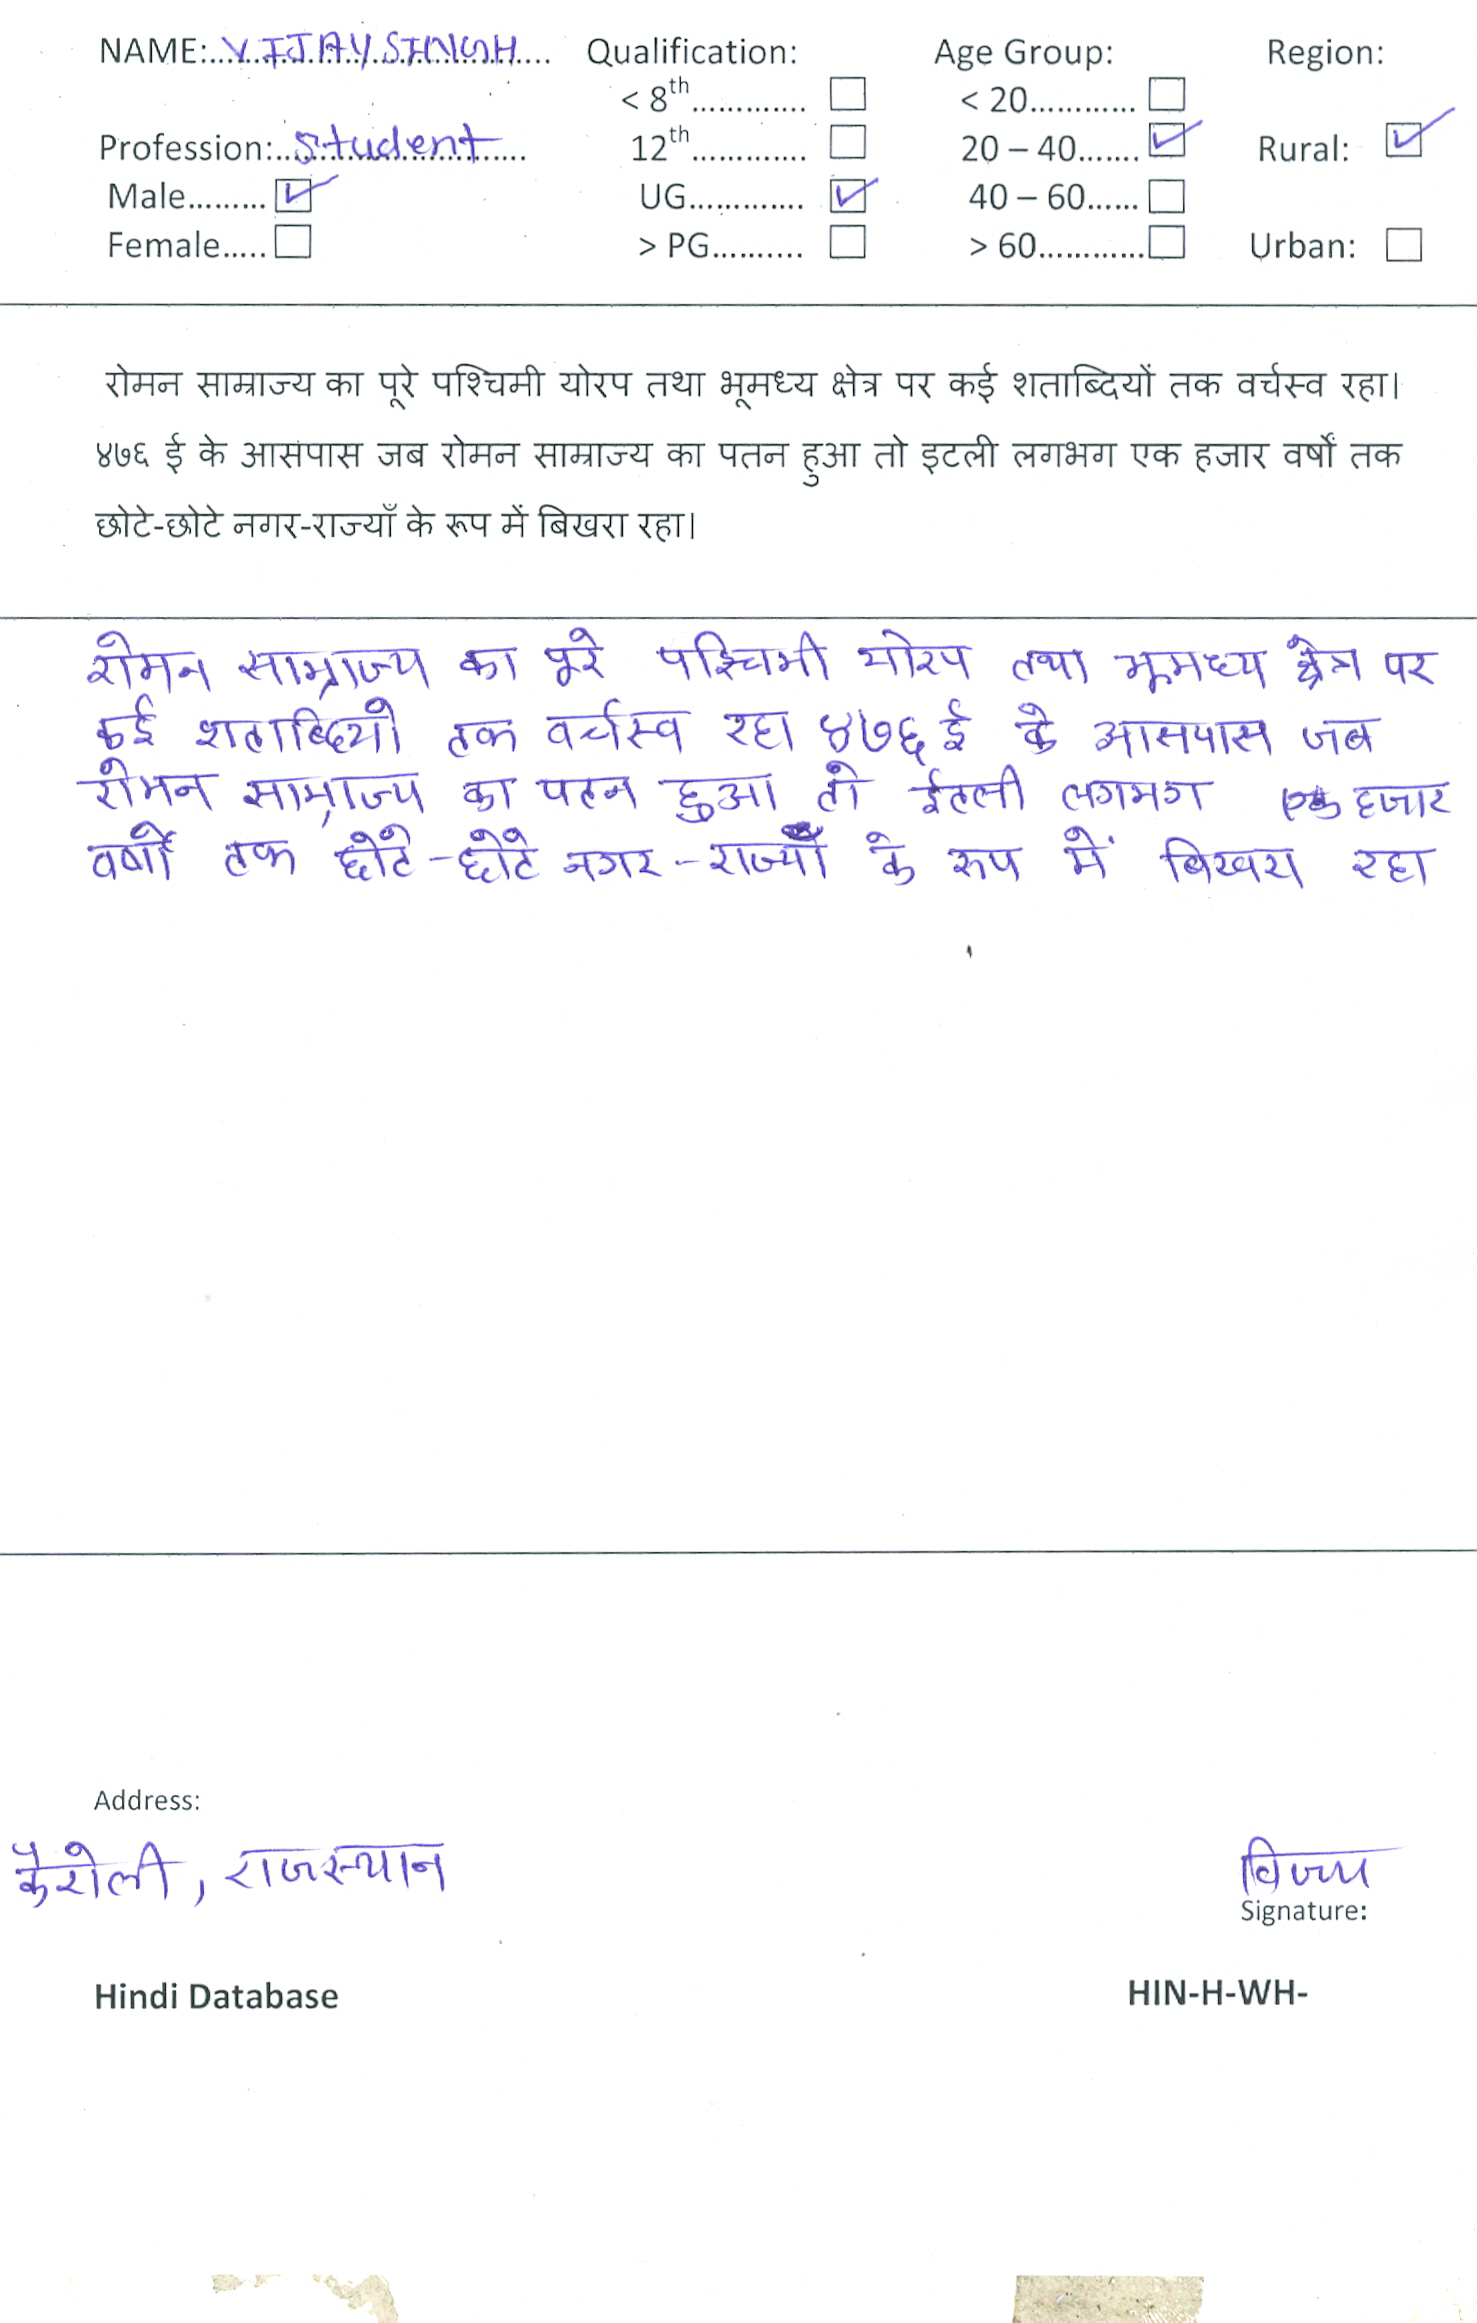 NAME: VIJAY SINGH Qualification: Age Group: Region:
< 8th ☐ < 20 ☐
Profession: student 12th ☐ 20 – 40 ☑ Rural: ☑
Male ☑ UG ☑ 40 – 60 ☐
Female ☐ > PG ☐ > 60 ☐ Urban: ☐
रोमन साम्राज्य का पूरे पश्चिमी योरप तथा भूमध्य क्षेत्र पर कई शताब्दियों तक वर्चस्व रहा।
४७६ ई के आसपास जब रोमन साम्राज्य का पतन हुआ तो इटली लगभग एक हजार वर्षों तक
छोटे-छोटे नगर-राज्याँ के रूप में बिखरा रहा।
रोमन साम्राज्य का पूरे पश्चिमी योरप तथा भूमध्य क्षेत्र पर
कई शताब्दियो तक वर्चस्व रहा ४७६ ई के आसपास जब
रोमन साम्राज्य का पतन हुआ तो ईतली लगभग एक हजार
वर्षों तक छोटे-छोटे नगर-राज्याँ के रूप में बिखरा रहा
Address:
कैरोली, राजस्थान
विजय
Signature:
Hindi Database HIN-H-WH-